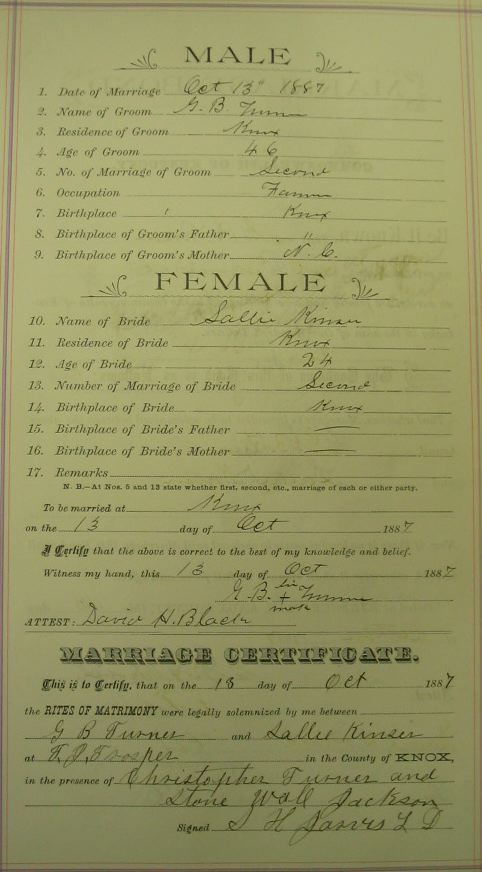 MALE
1. Date of Marriage Oct 13" 1887
2. Name of Groom G. B. Turner
3. Residence of Groom Knox
4. Age of Groom 46
5. No. of Marriage of Groom Second
6. Occupation Farmer
7. Birthplace Knox
8. Birthplace of Groom's Father "
9. Birthplace of Groom's Mother N. C.
FEMALE
10. Name of Bride Sallie Kinser
11. Residence of Bride Knox
12. Age of Bride 24
13. Number of Marriage of Bride Second
14. Birthplace of Bride Knox
15. Birthplace of Bride's Father —
16. Birthplace of Bride's Mother —
17. Remarks
N. B.—At Nos. 5 and 13 state whether first, second, etc., marriage of each or either party.
To be married at Knox
on the 13 day of Oct 1887
I Certify that the above is correct to the best of my knowledge and belief.
Witness my hand, this 13 day of Oct 1887
G. B. his + Turner
mark
ATTEST: David H. Black
MARRIAGE CERTIFICATE.
This is to Certify, that on the 13 day of Oct 1887
the RITES OF MATRIMONY were legally solemnized by me between
G B Turner and Sallie Kinser
at T. J. Prosper in the County of KNOX,
in the presence of Christopher Turner and
Stone Wall Jackson
Signed H Jarvis L D